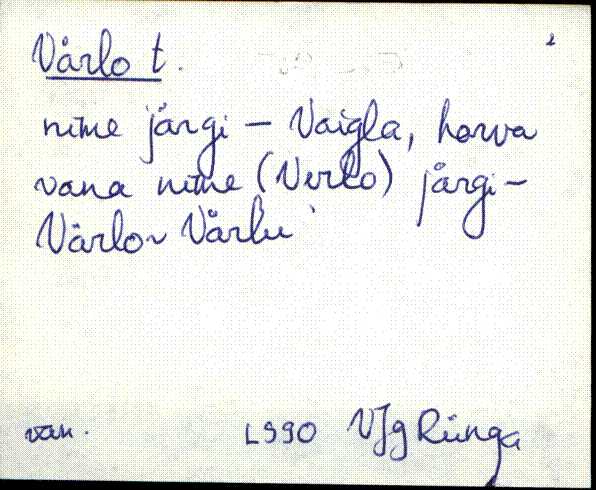 Vårlo t.
nime järgi – Vaigla, harva
vana nime (Verlo) järgi –
Vårlo ~ Vårlu
van. 1990 VJg Riinga